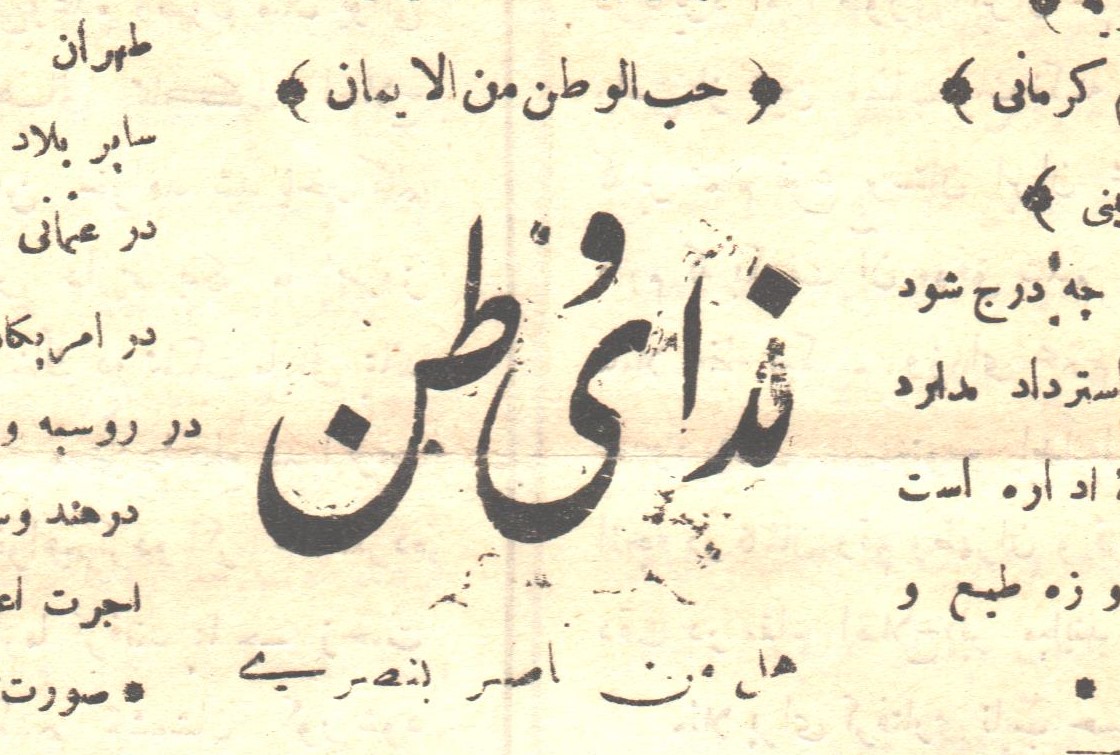 کرمانی
چه درج شود
استرداد ندارد
اداره است
طبع و
حب الوطن من الایمان
ندای وطن
هل من ناصر
طهران
سایر بلاد
در عثمانی
در روسیه و
در هند
اجرت
صورت